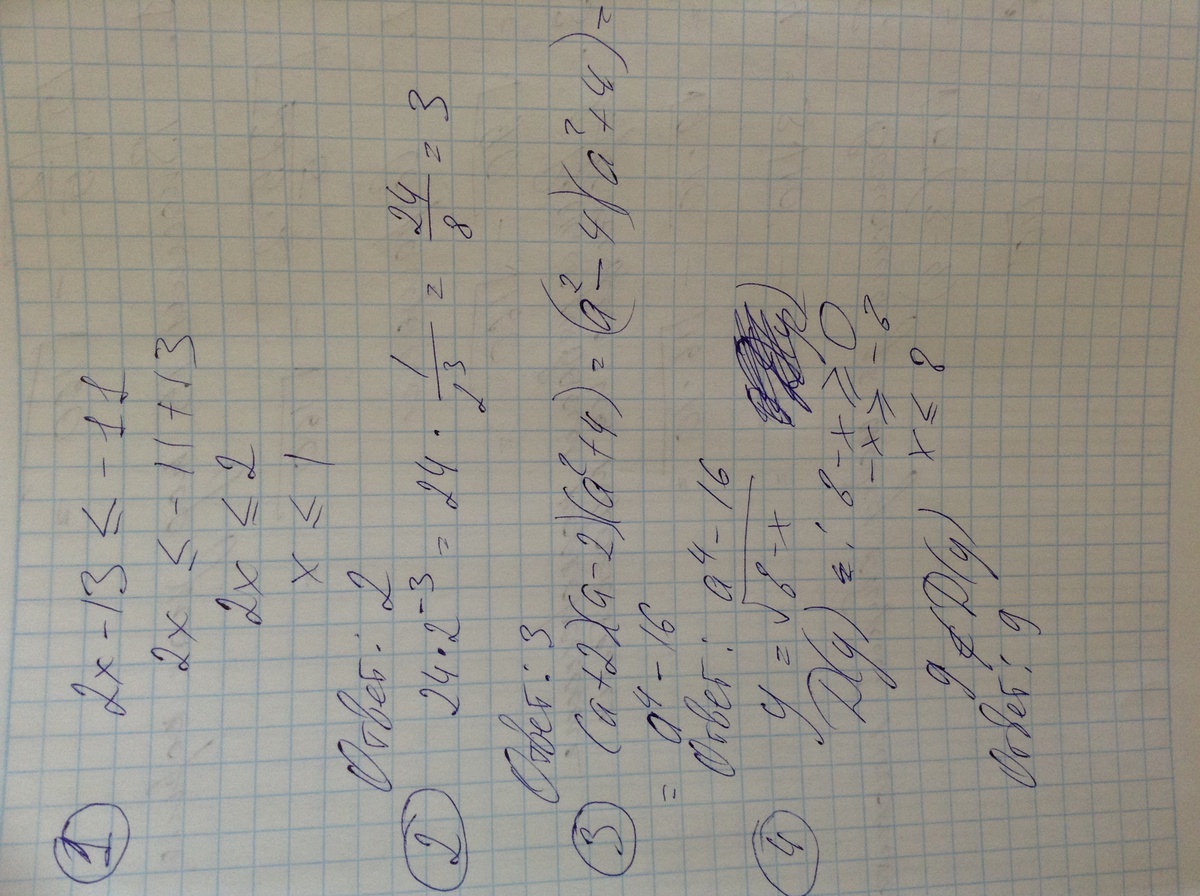 1 2x-13 ≤ -11
2x ≤ -11+13
2x ≤ 2
x ≤ 1
Ответ: 2
2 24·2^-3 = 24 · 1/2^3 = 24/8 = 3
Ответ: 3
3 (a+2)(a-2)(a^2+4) = (a^2-4)(a^2+4) =
= a^4-16
Ответ: a^4-16
4 y = √8-x
D(y): 8-x ≥ 0
-x ≥ -8
x ≤ 8
9 ∉ D(y)
Ответ: 9